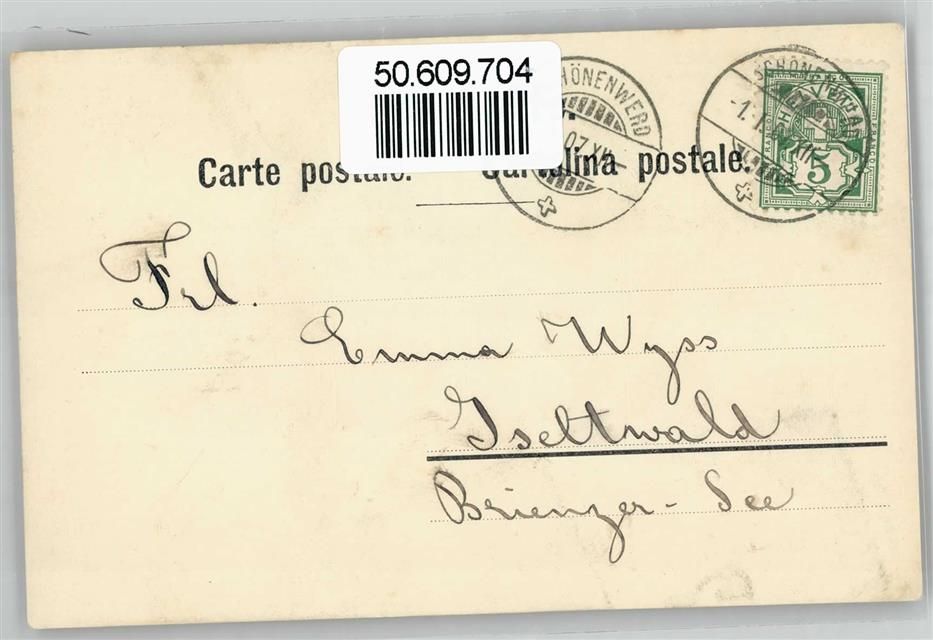 50.609.704
SCHÖNENWERD
07.XII
Carte postale. Cartolina postale.
FRANCO
5
Frl.
Emma Wyss
Iseltwald
Brienzer-See